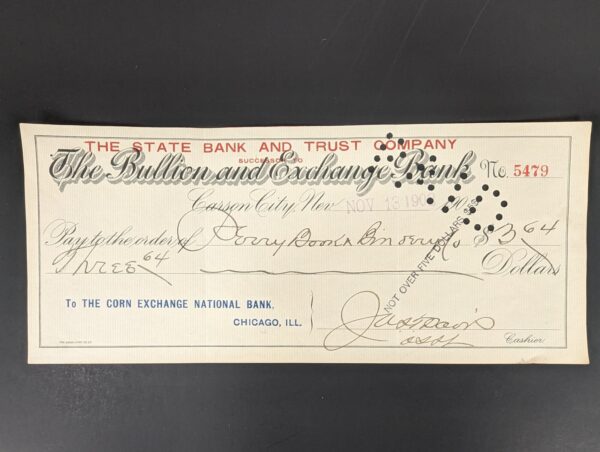 THE STATE BANK AND TRUST COMPANY
SUCCESSOR TO
The Bullion and Exchange Bank No. 5479
Carson City, Nev. NOV 13 190
Pay to the order of Perry Book & Bindery Co $3 64
Three 64 Dollars
NOT OVER FIVE DOLLARS $5$
To THE CORN EXCHANGE NATIONAL BANK,
CHICAGO, ILL.
Cashier